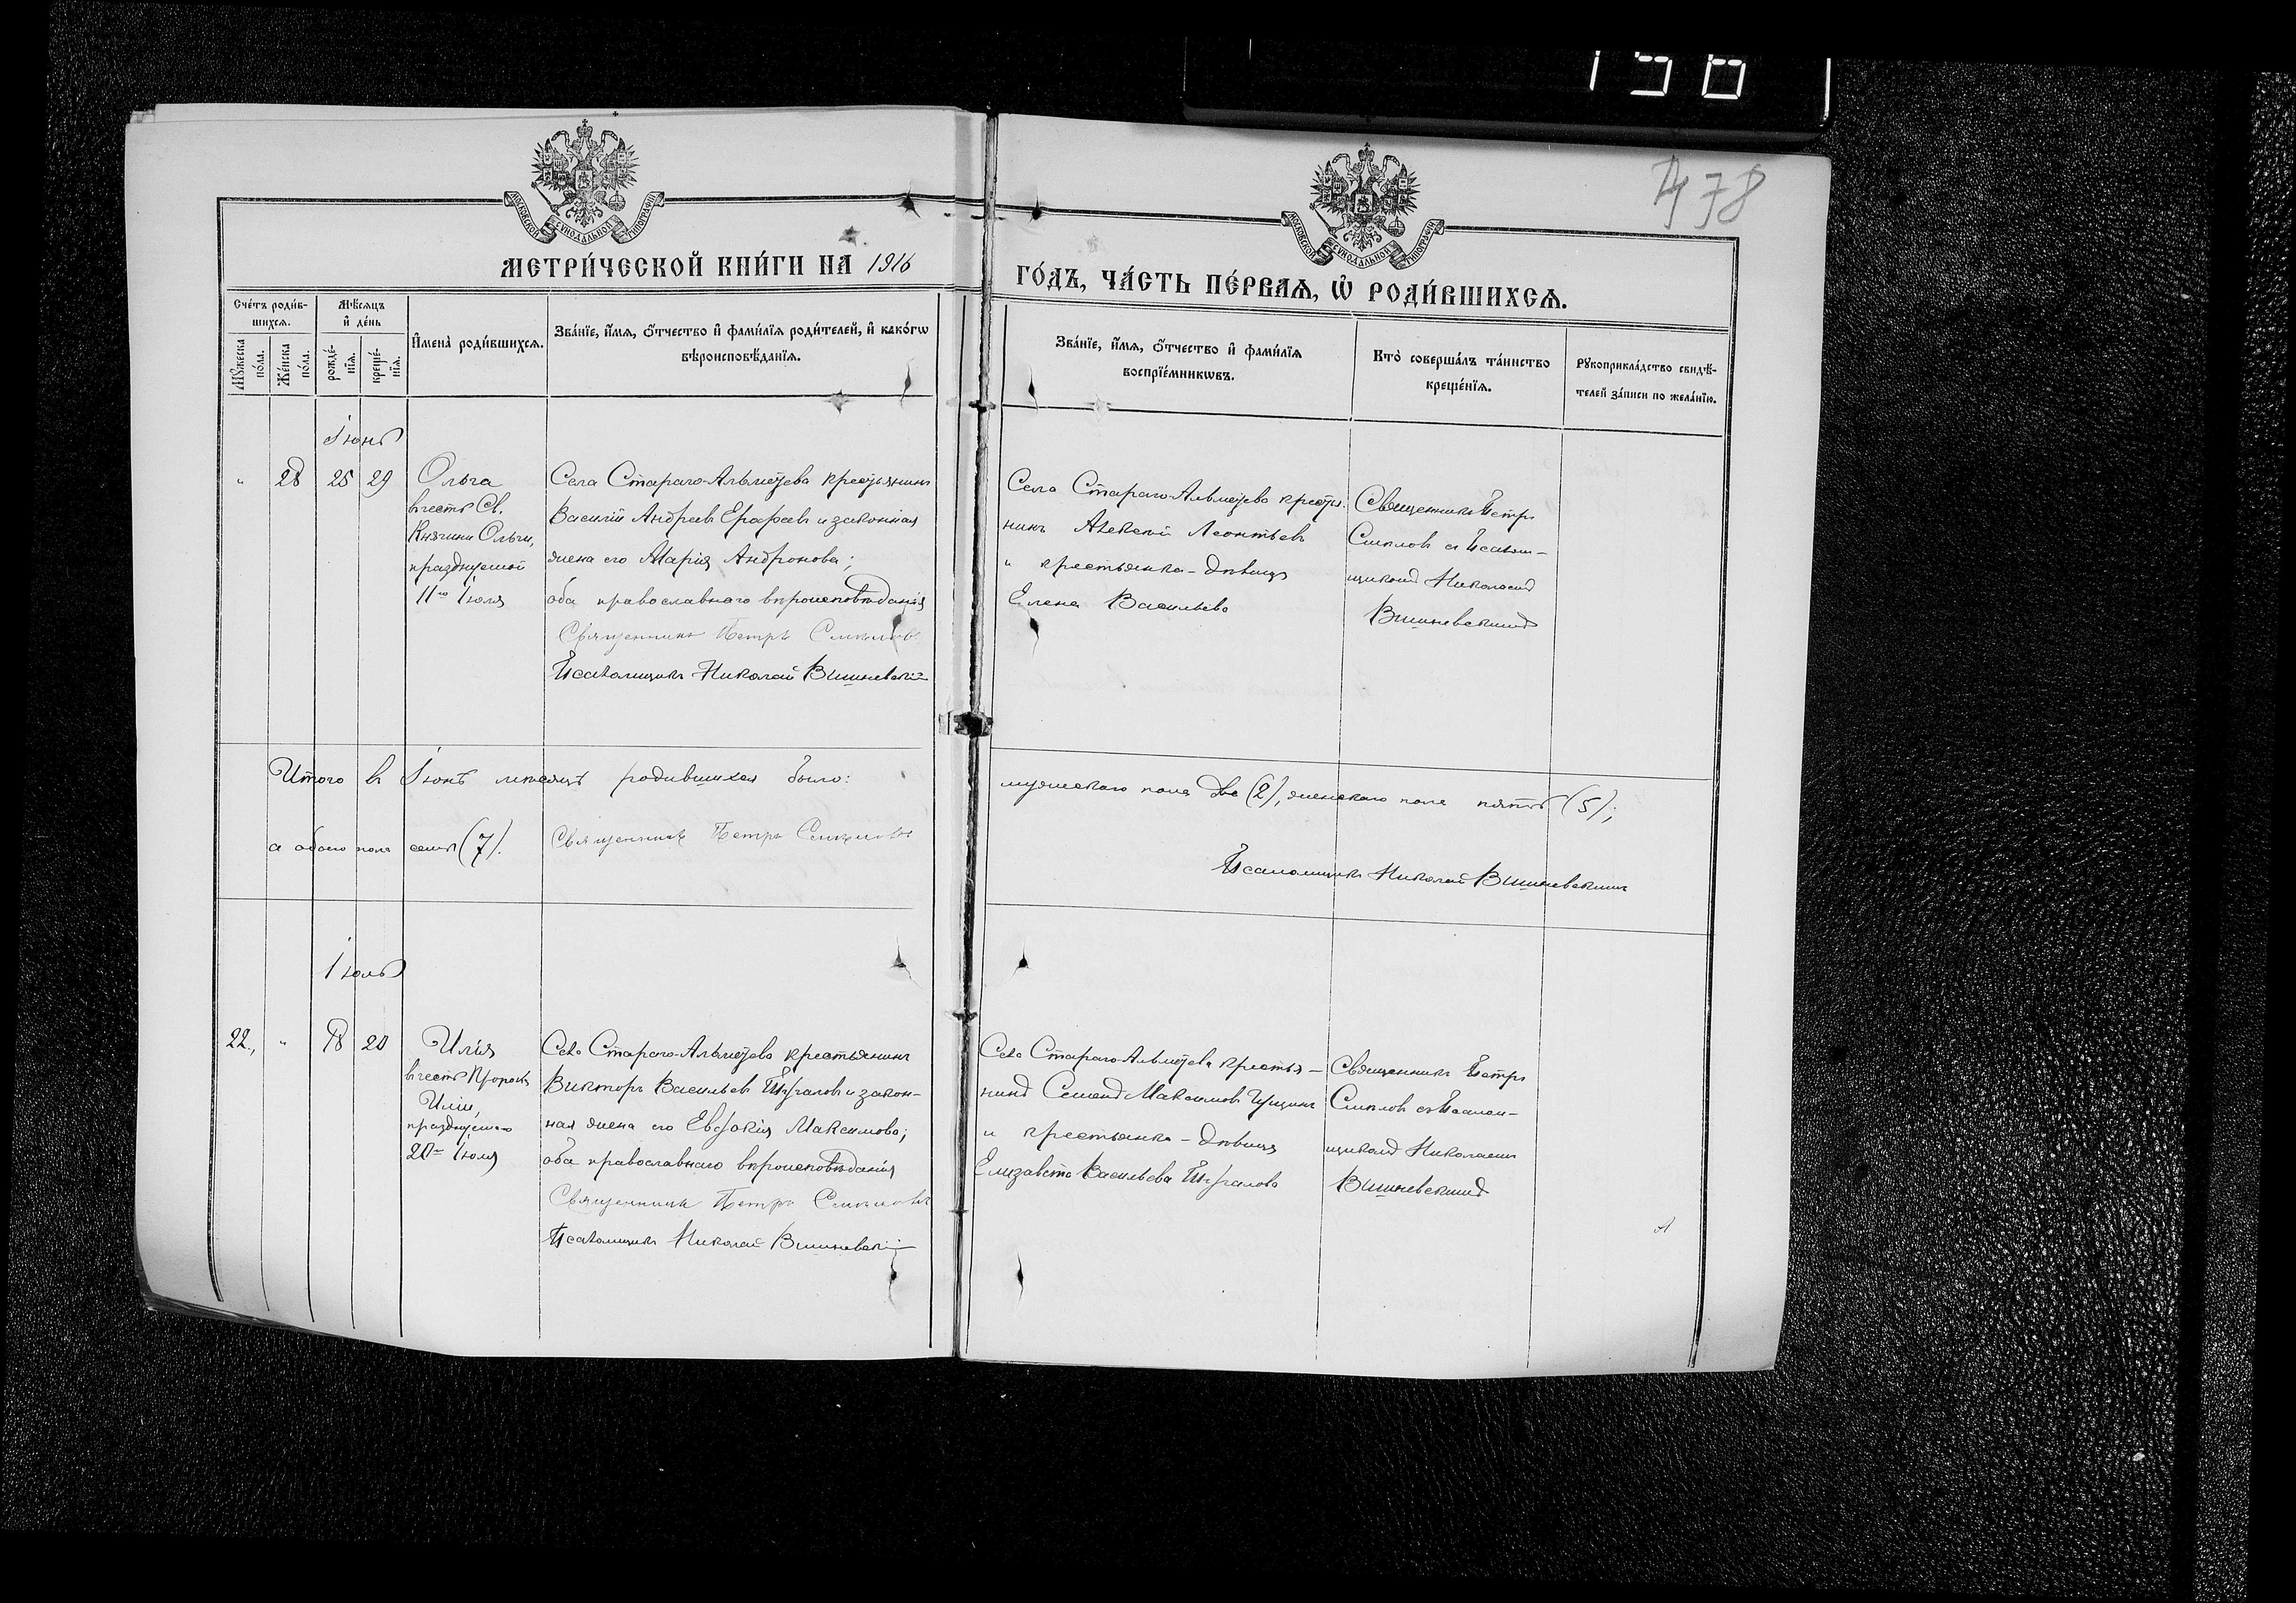 198
478
МОСКОВСКОЙ СѴНОДАЛЬНОЙ ТИПОГРАФІИ
МОСКОВСКОЙ СѴНОДАЛЬНОЙ ТИПОГРАФІИ
МЕТРИ́ЧЕСКОЙ КНИ́ГИ НА 1916
ГО́ДЪ, ЧА́СТЬ ПЕ́РВАѦ, Ѽ РОДИ́ВШИХСѦ.
Сче́тъ роди́в-
шихсѧ.
Мѣ́сѧцъ
и҆ де́нь
Мꙋ́жеска
по́ла.
Же́нска
по́ла.
рожде́-
нїѧ.
креще́-
нїѧ.
И҆мена̀ роди́вшихсѧ.
Зва́нїе, и҆́мѧ, ѻ҆́тчество и҆ фами́лїѧ роди́телей, и҆ како́гѡ
вѣроисповѣ́данїѧ.
Зва́нїе, и҆́мѧ, ѻ҆́тчество и҆ фами́лїѧ
воспрїе́мникѡвъ.
Кто̀ соверша́лъ та́инство
креще́нїѧ.
Рꙋкоприкла́дство свидѣ́-
телей за́писи по жела́нїю.
Іюнь
" 28 25 29
Ольга
въ честь Св.
Княгини Ольги,
празднуемой
11го Іюля
Села Стараго-Альметева крестьянинъ
Василій Андреевъ и законная
жена его Марія Андронова;
оба православнаго вѣроисповѣданія
Священникъ Петръ Смѣловъ
Псаломщикъ Николай Вишневскій
Села Стараго-Альметева крестья-
нинъ Алексѣй Леонтьевъ
и крестьянка-дѣвица
Елена Васильева
Священникъ Петръ
Смѣловъ съ Псалом-
щикомъ Николаемъ
Вишневскимъ
Итого въ Іюнѣ мѣсяцѣ родившихся было:
мужескаго пола два (2), женскаго пола пять (5);
а обоего пола семь (7). Священникъ Петръ Смѣловъ
Псаломщикъ Николай Вишневскій
Іюль
22. " 18 20
Илія
въ честь Пророка
Иліи,
празднуемаго
20го Іюля
Села Стараго-Альметева крестьянинъ
Викторъ Васильевъ и закон-
ная жена его Евдокія Максимова;
оба православнаго вѣроисповѣданія
Священникъ Петръ Смѣловъ
Псаломщикъ Николай Вишневскій
Села Стараго-Альметева крестья-
нинъ Семенъ Максимовъ
и крестьянка-дѣвица
Елизавета Васильева
Священникъ Петръ
Смѣловъ съ Псалом-
щикомъ Николаемъ
Вишневскимъ